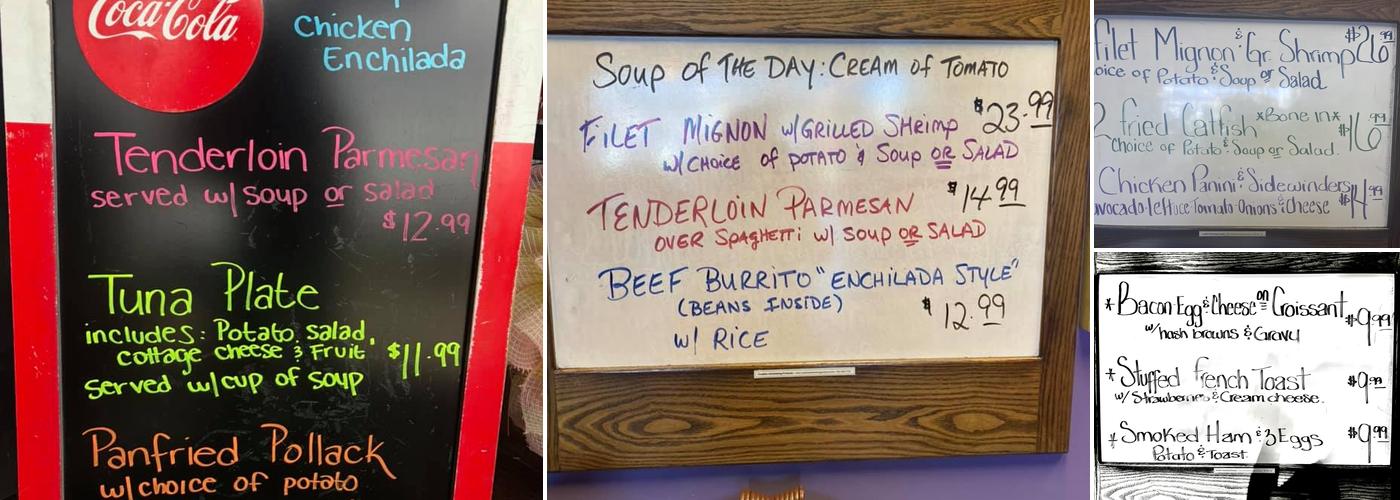 Coca-Cola
Chicken
Enchilada
Tenderloin Parmesan
served w/ soup or salad
$12.99
Tuna Plate
includes: Potato salad,
cottage cheese & Fruit $11.99
served w/cup of soup
Panfried Pollack
w/choice of potato
Soup of THE DAY: CREAM of TOMATO
FILET MIGNON w/GRILLED SHRIMP $23.99
w/CHOICE of POTATO & Soup OR SALAD
TENDERLOIN PARMESAN $14.99
OVER SPAGHETTI w/ SOUP OR SALAD
BEEF BURRITO "ENCHILADA STYLE"
(BEANS INSIDE) $12.99
w/ RICE
Filet Mignon & Gr. Shrimp $26.99
oice of Potato & Soup or Salad
2 fried Catfish *Bone in* $16.99
Choice of Potato & Soup or Salad.
Chicken Panini & Sidewinders $14.99
avocado-lettuce Tomato-Onions & Cheese
* Bacon Egg & Cheese on Croissant $9.99
w/hash browns & Gravy
* Stuffed french Toast $9.99
w/ Strawberries & Cream cheese.
* Smoked Ham & 3 Eggs $9.99
Potato & Toast